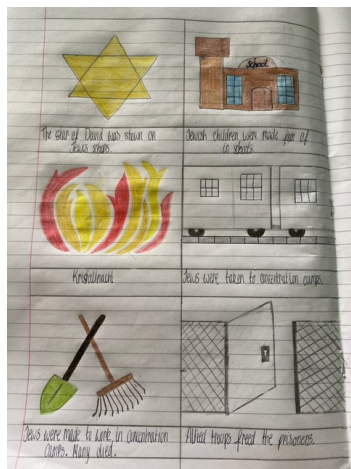 School
The star of David was shown on
Jews shops.
Jewish children were made fun of
in schools.
Kristallnacht
Jews were taken to concentration camps.
Jews were made to work in concentration
camps. Many died.
Allied troops freed the prisoners.